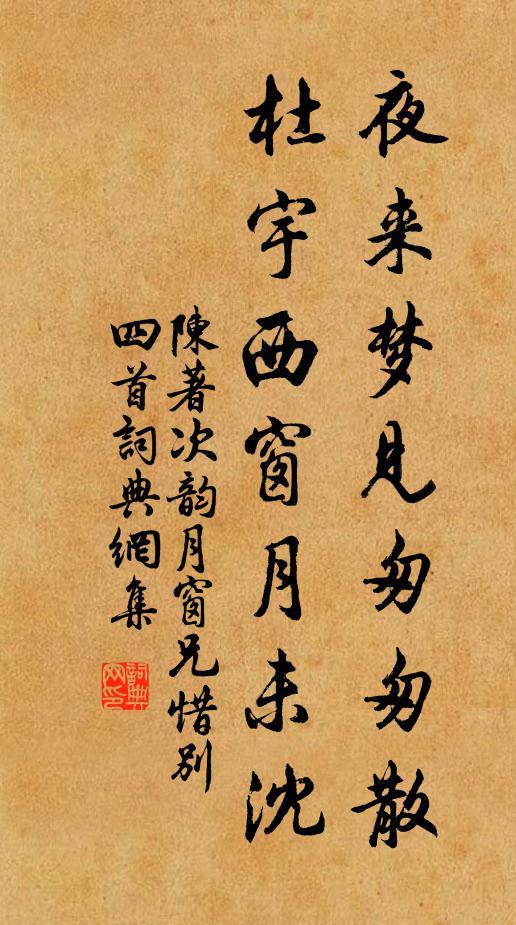 夜来梦见匆匆散
杜宇西窗月未沈
陳著次韵月窗兄惜别
四首詞典網集
詞典网印